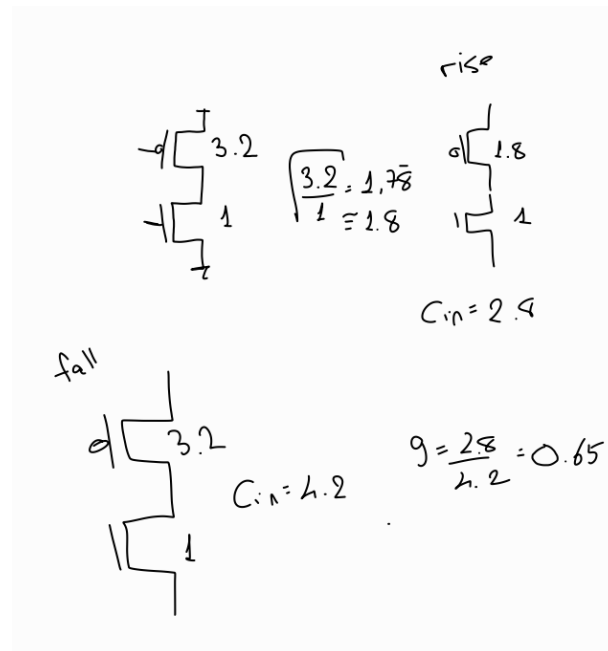 rise
3.2
1
√3.2/1 = 1,78
≅ 1.8
1.8
1
Cin = 2.8
fall
3.2
1
Cin = 4.2
g = 2.8/4.2 = 0.65